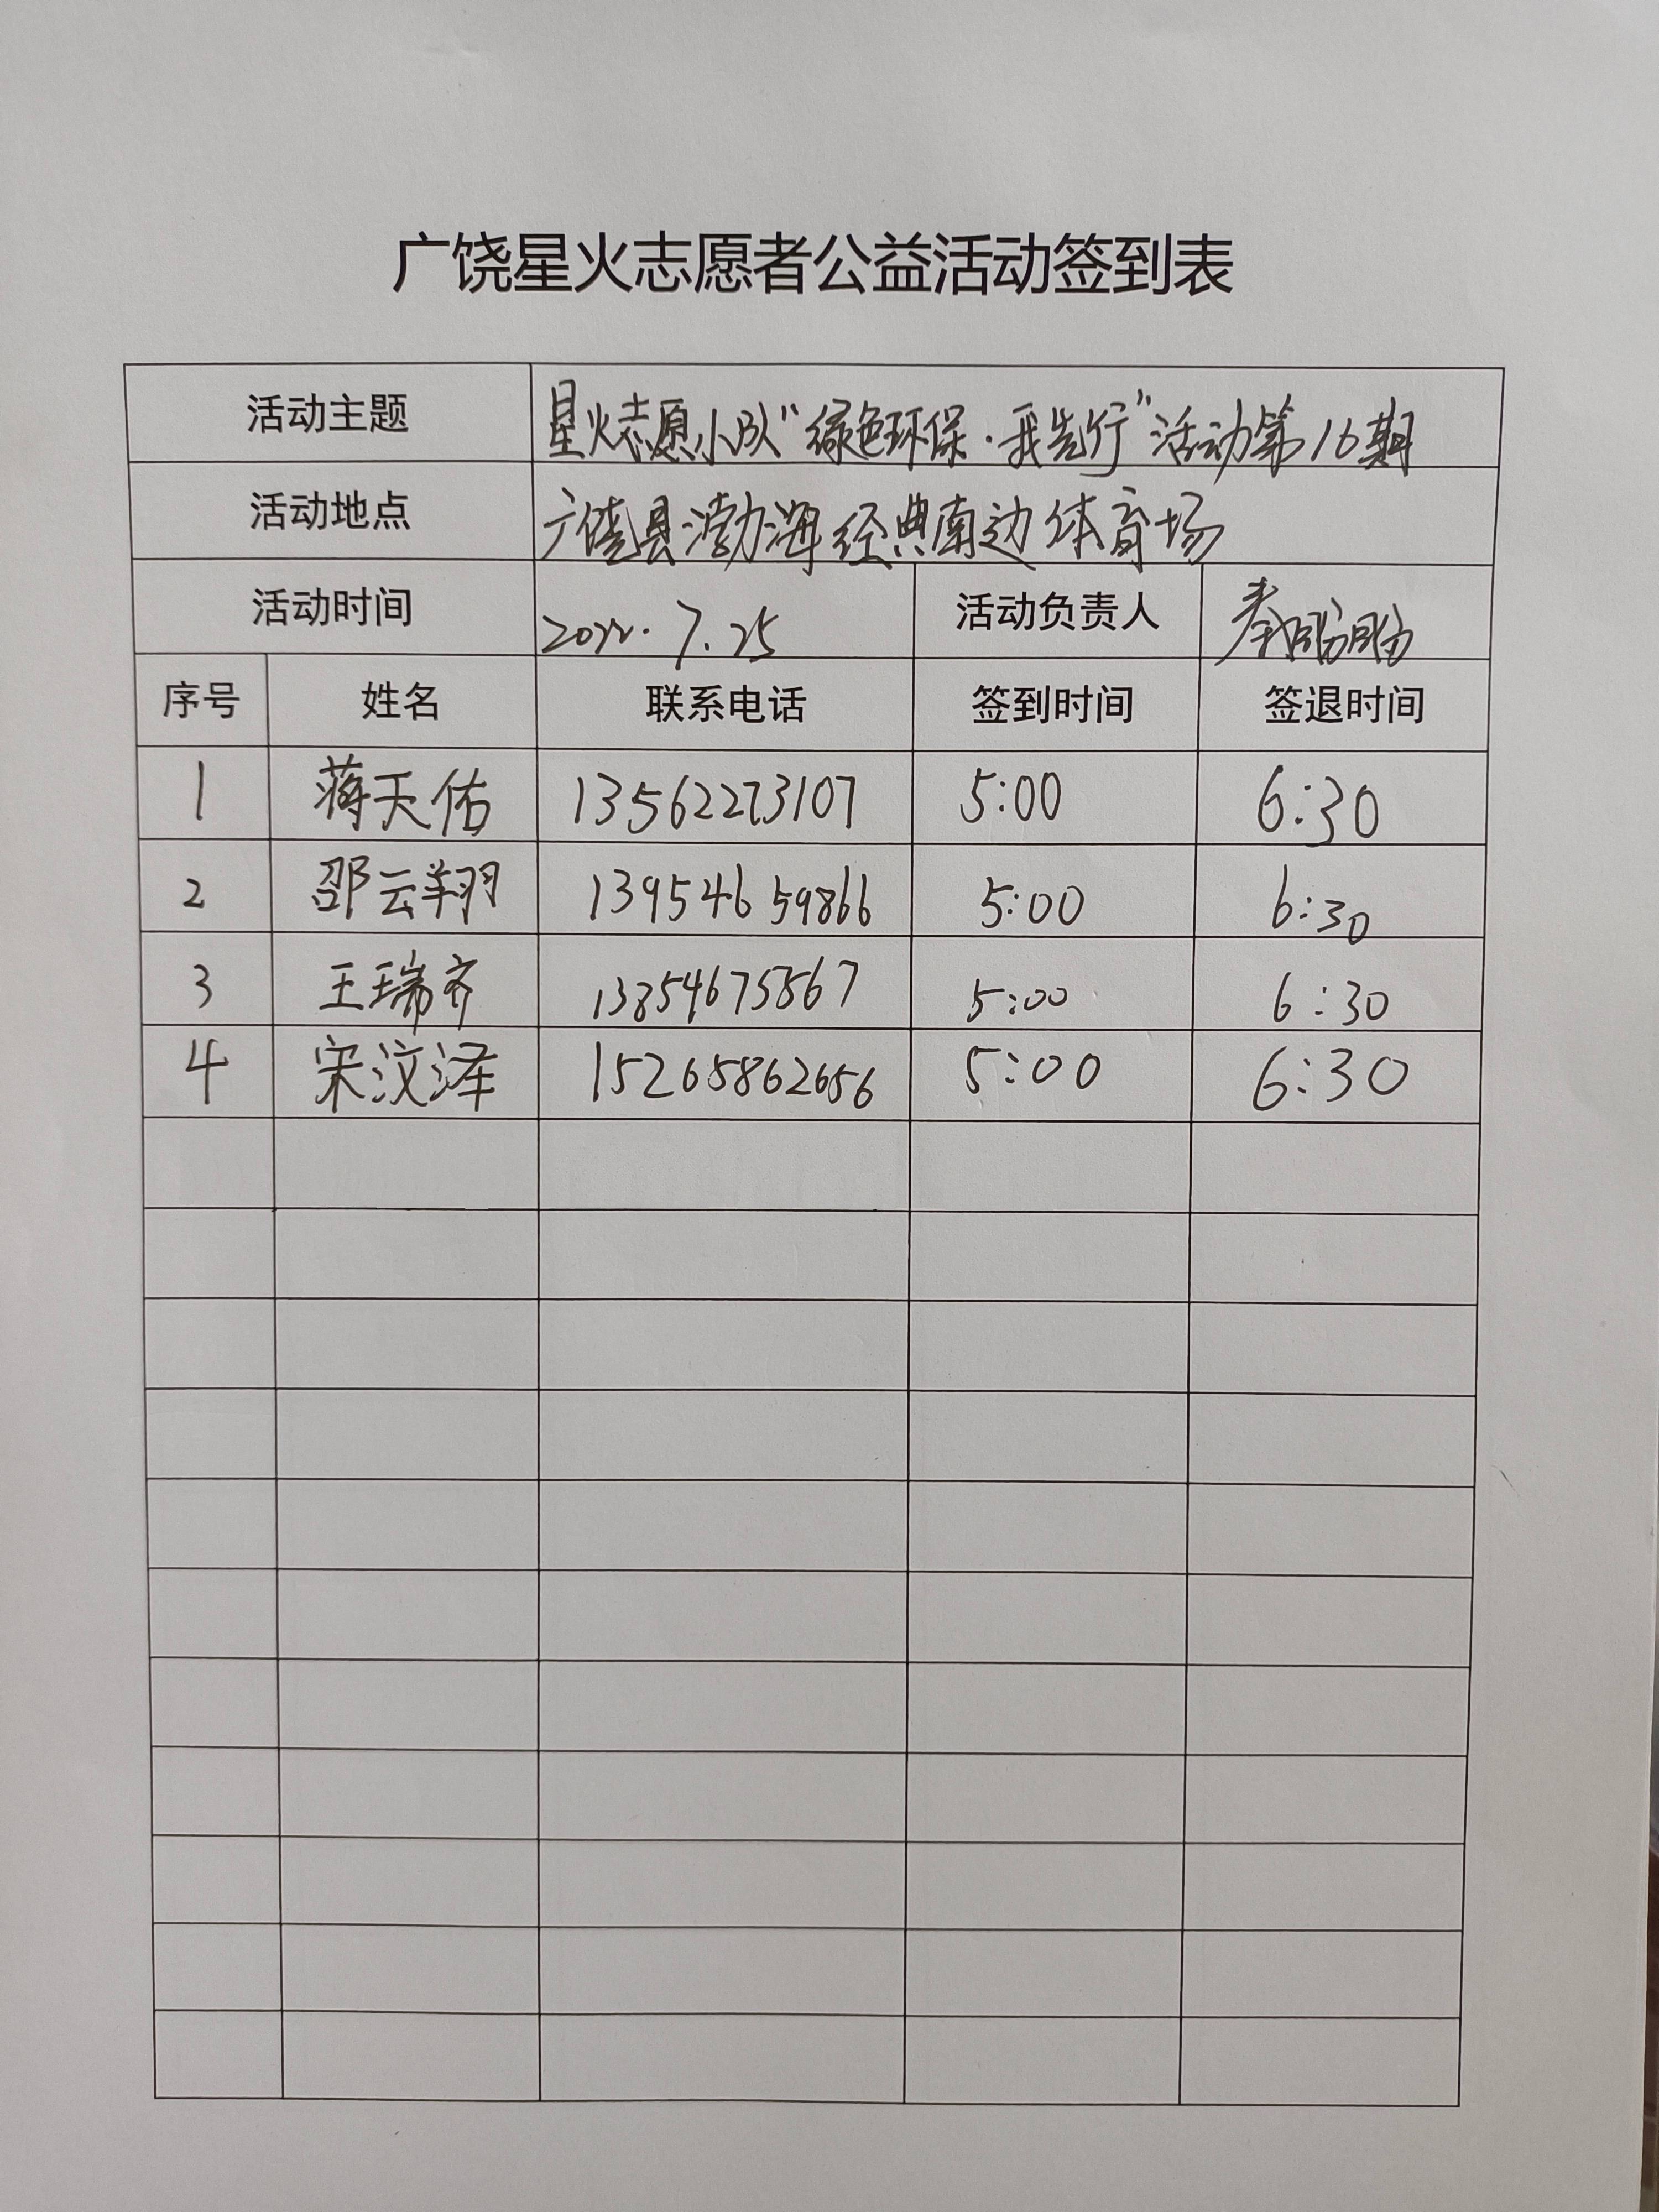 广饶星火志愿者公益活动签到表
活动主题 星火志愿小队“绿色环保·我先行”活动第16期
活动地点 广饶县渤海经典南边体育场
活动时间 2022.7.25 活动负责人
序号 姓名 联系电话 签到时间 签退时间
1 蒋天佑 13562273107 5:00 6:30
2 邵云翔 13954659866 5:00 6:30
3 王瑞齐 13854675867 5:00 6:30
4 宋汶泽 15265862656 5:00 6:30